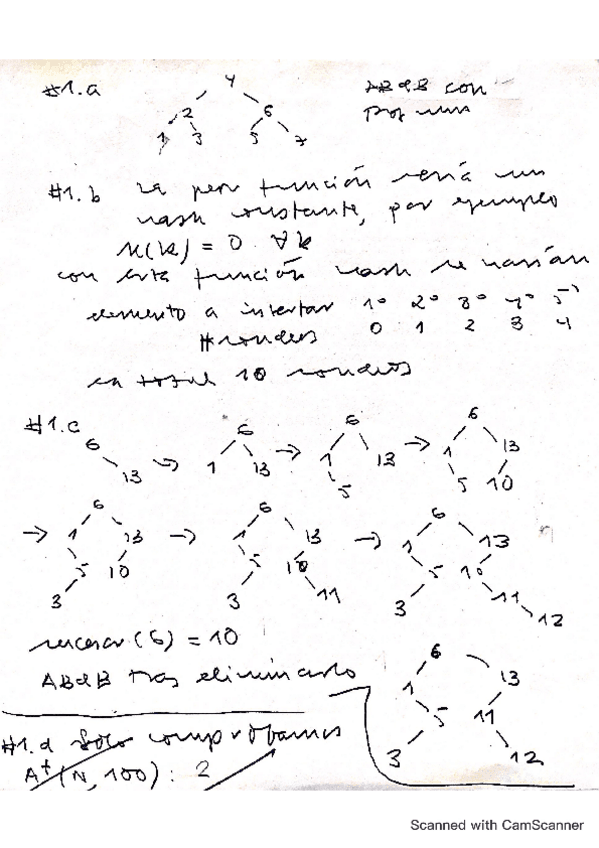 #1.a
4
2 6
1 3 5 7
ABdB con
prof mín
#1.b La peor función sería un
hash constante, por ejemplo
h(k) = 0 ∀k
con esta función hash se harían
elemento a insertar 1º 2º 3º 4º 5º
#sondeos 0 1 2 3 4
en total 10 sondeos
#1.c
6 13 → 6 1 13 → 6 1 13 5 → 6 1 13 5 10
→ 6 1 13 5 10 3 → 6 1 13 5 10 3 11 → 6 1 13 5 10 3 11 12
sucesor(6) = 10
ABdB tras eliminarlo
6 1 13 5 11 3 12
#1.d Sólo comprobamos
A+(N,100): 2
Scanned with CamScanner